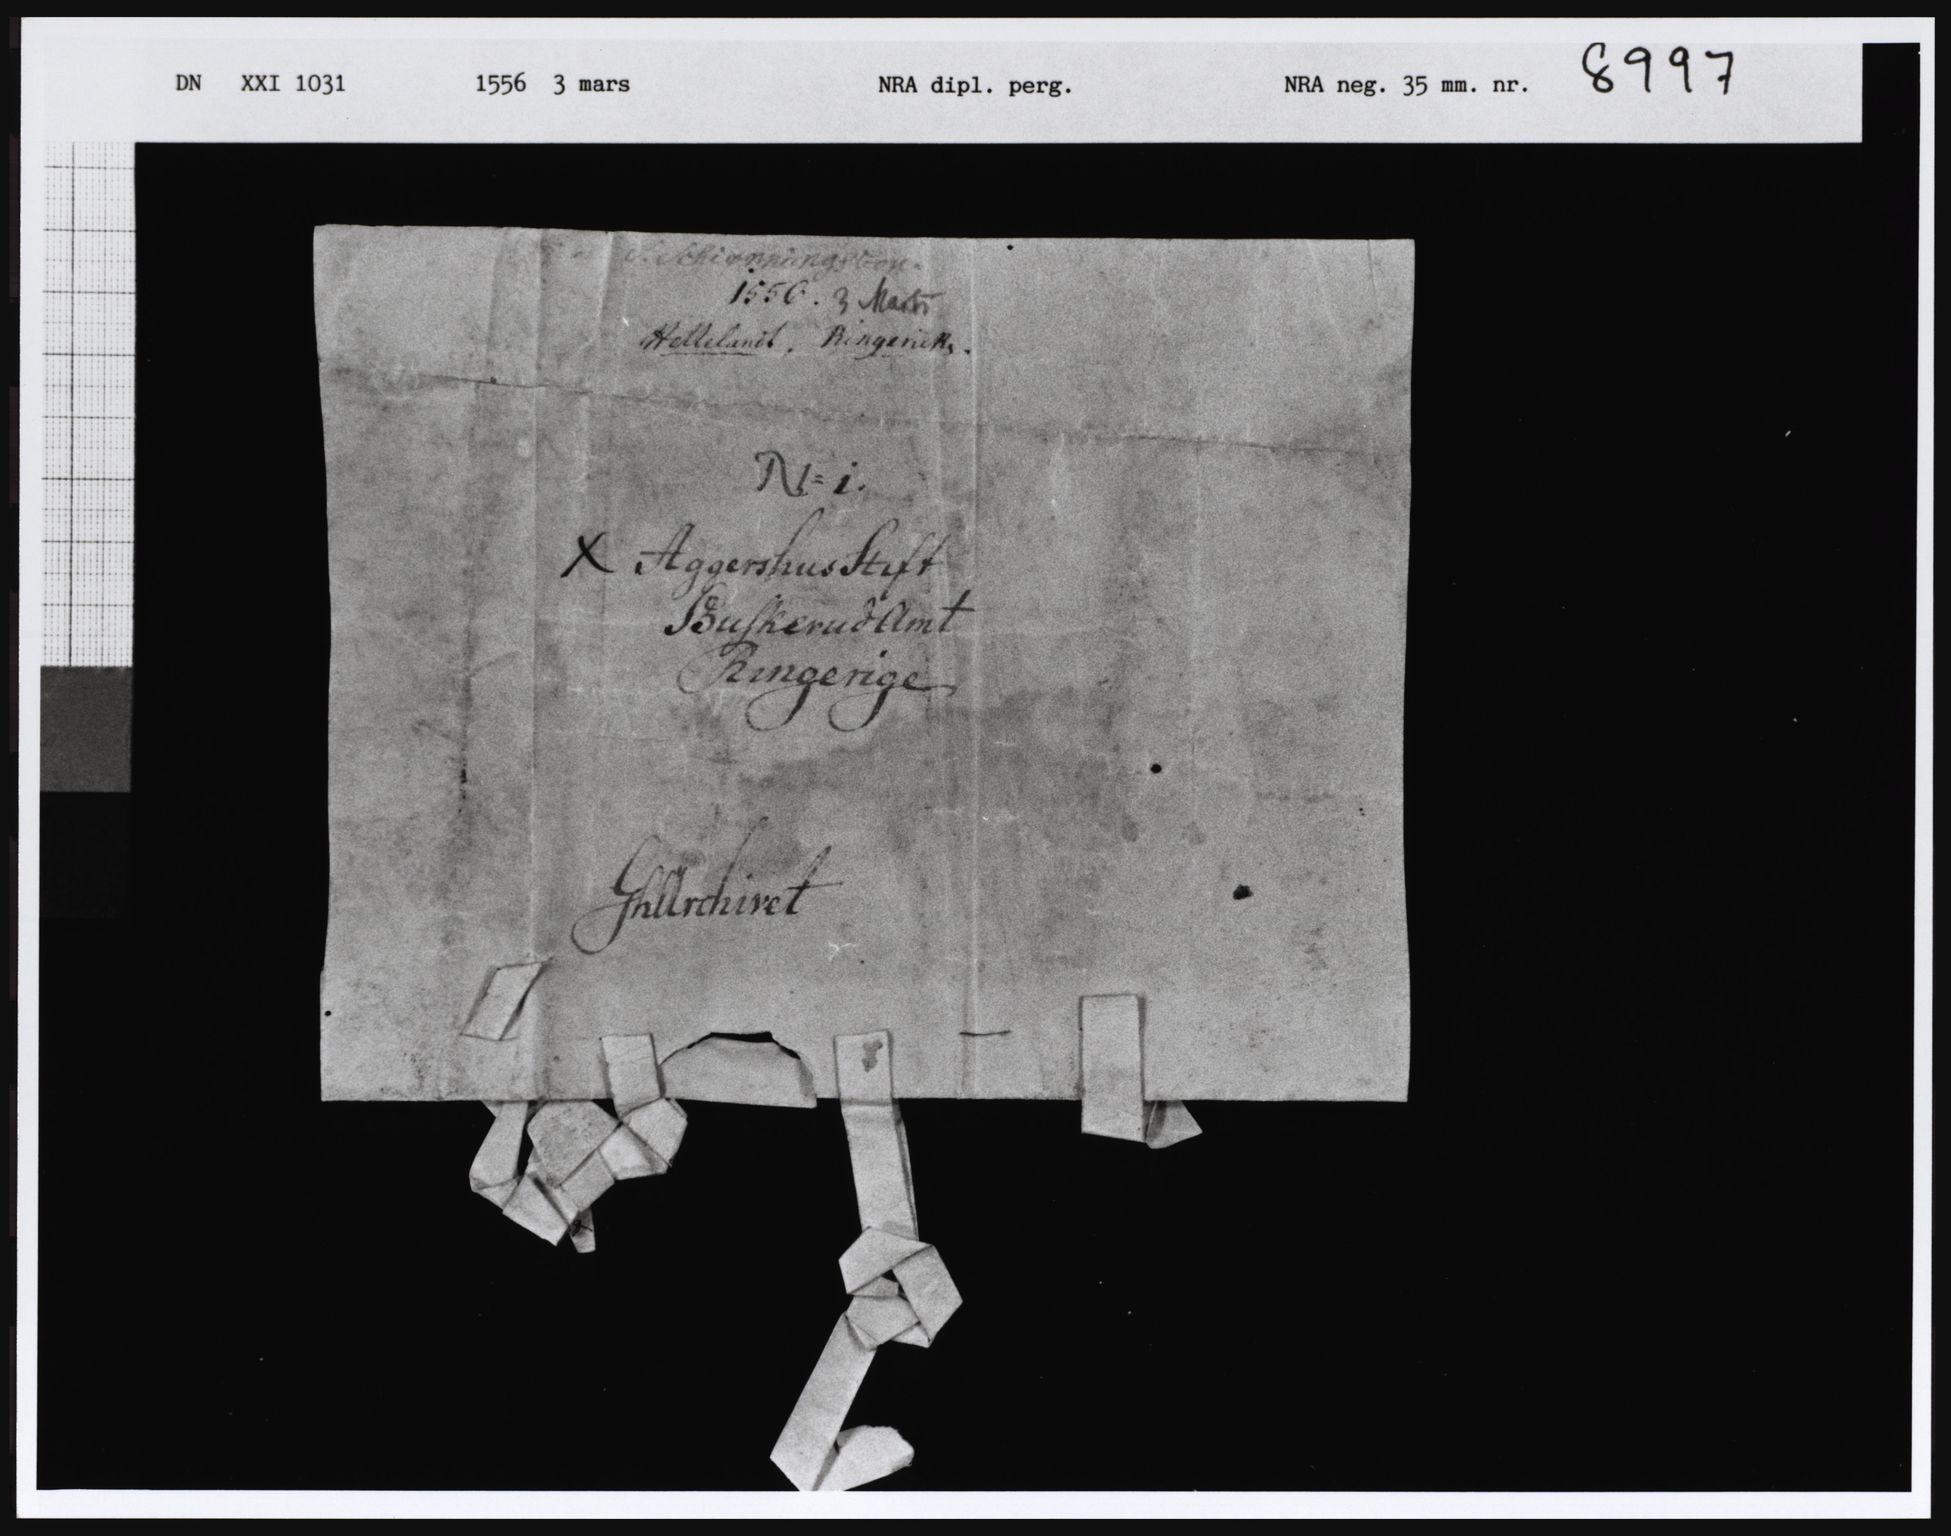 DN XXI 1031 1556 3 mars NRA dipl. perg. NRA neg. 35 mm. nr. 8997
1556. 3 Marts
Helleland, Ringerike.
N= i.
X Aggershus Stift
Buskerud Amt
Ringerige
GhlArchivet